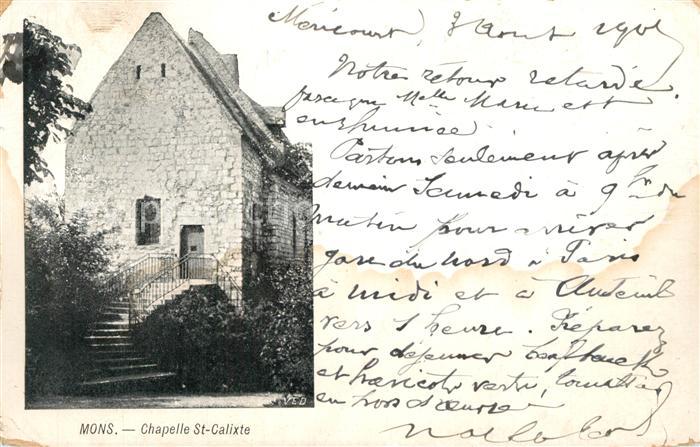 Méricourt, 3 Août 190
Notre retour retardé.
parce que Melle Marie est
enrhumée
Partons seulement après
demain Samedi à 9 hr du
matin pour arriver
gare du nord à Paris
à midi et à Auteuil
vers 1 heure. Préparez
pour déjeuner
et haricots verts, tomates
en hors d'œuvre
MONS. — Chapelle St-Calixte
VED